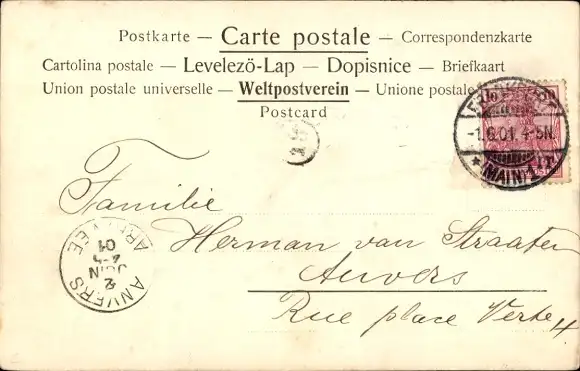 Postkarte — Carte postale — Correspondenzkarte
Cartolina postale — Levelezö-Lap — Dopisnice — Briefkaart
Union postale universelle — Weltpostverein — Unione postale
Postcard
-1.6.01. 4-5N.
* (MAIN) 1.
Familie
Herman van Straaten
Anvers
Rue place Verte 4
ANVERS
2
JUIN
4-5
01
ARRIVEE